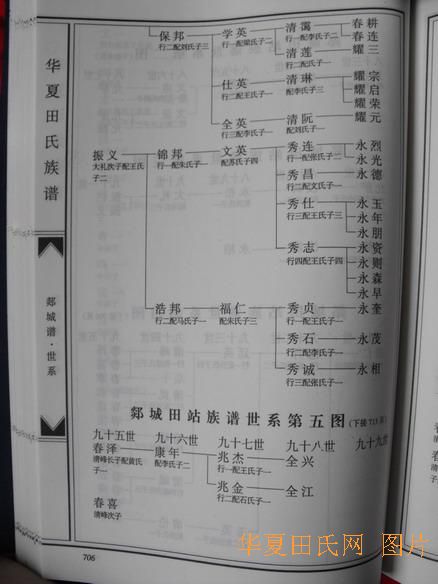 华夏田氏族谱
郯城谱·世系
保邦 学英 清霭 春耕
行二配刘氏子三 行一配梁氏子二 行一配李氏子二 春连
清莲 耀三
行二配氏子一
仕英 清琳 耀宗
行二配王氏子一 配李氏子三 耀启
耀荣
全英 清阮 耀元
行三配李氏子一 配刘氏子一
振义 锦邦 文英 秀连 永烈
大礼次子配王氏子二 行一配朱氏子一 配苏氏子四 行一配张氏子二 永光
秀昌 永德
行二配文氏子一
秀仕 永玉
行三配王氏子三 永年
永朋
秀志 永资
行四配王氏子四 永则
永森
永早
浩邦 福仁 秀贞 永奎
行二配马氏子一 配朱氏子三 行一配王氏子一
秀石 永茂
行二配李氏子一
秀诚 永相
行三配张氏子一
郯城田站族谱世系第五图(下接713页)
九十五世 九十六世 九十七世 九十八世 九十九世
春泽 康年 兆杰 全兴
清峰长子配黄氏子一 配李氏子二 行一配王氏子一
兆金 全江
行二配石氏子一
春喜
清峰次子
706
华夏田氏网 图片